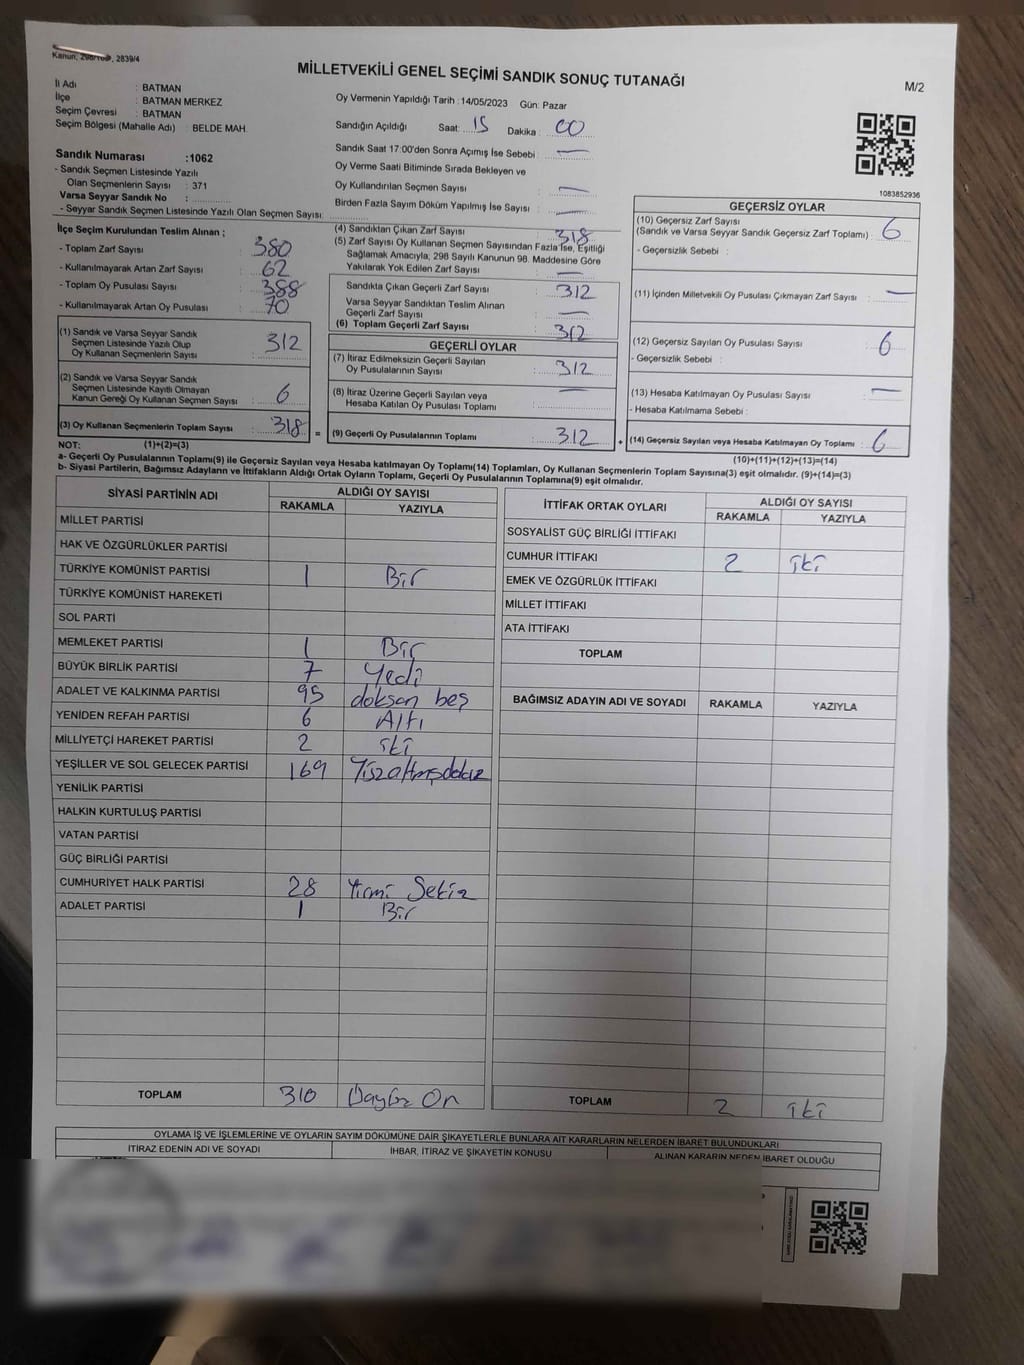 Kanun, 2839/4
MİLLETVEKİLİ GENEL SEÇİMİ SANDIK SONUÇ TUTANAĞI
M/2
İl Adı : BATMAN
İlçe : BATMAN MERKEZ
Seçim Çevresi : BATMAN
Seçim Bölgesi (Mahalle Adı) : BELDE MAH.
Oy Vermenin Yapıldığı Tarih : 14/05/2023 Gün: Pazar
Sandığın Açıldığı Saat: 15 Dakika : 00
Sandık Saat 17:00'den Sonra Açımış İse Sebebi : —
Oy Verme Saati Bitiminde Sırada Bekleyen ve
Oy Kullandırılan Seçmen Sayısı : —
Birden Fazla Sayım Döküm Yapılmış İse Sayısı : —
Sandık Numarası :1062
- Sandık Seçmen Listesinde Yazılı
Olan Seçmenlerin Sayısı : 371
Varsa Seyyar Sandık No :
- Seyyar Sandık Seçmen Listesinde Yazılı Olan Seçmen Sayısı:
1083852936
İlçe Seçim Kurulundan Teslim Alınan ;
- Toplam Zarf Sayısı : 380
- Kullanılmayarak Artan Zarf Sayısı : 62
- Toplam Oy Pusulası Sayısı : 388
- Kullanılmayarak Artan Oy Pusulası : 70
(1) Sandık ve Varsa Seyyar Sandık
Seçmen Listesinde Yazılı Olup
Oy Kullanan Seçmenlerin Sayısı : 312
(2) Sandık ve Varsa Seyyar Sandık
Seçmen Listesinde Kayıtlı Olmayan
Kanun Gereği Oy Kullanan Seçmen Sayısı : 6
(3) Oy Kullanan Seçmenlerin Toplam Sayısı : 318 =
(4) Sandıktan Çıkan Zarf Sayısı : 318
(5) Zarf Sayısı Oy Kullanan Seçmen Sayısından Fazla İse, Eşitliği
Sağlamak Amacıyla; 298 Sayılı Kanunun 98. Maddesine Göre
Yakılarak Yok Edilen Zarf Sayısı : —
Sandıkta Çıkan Geçerli Zarf Sayısı : 312
Varsa Seyyar Sandıktan Teslim Alınan
Geçerli Zarf Sayısı : —
(6) Toplam Geçerli Zarf Sayısı : 312
GEÇERLİ OYLAR
(7) İtiraz Edilmeksizin Geçerli Sayılan
Oy Pusulalarının Sayısı : 312
(8) İtiraz Üzerine Geçerli Sayılan veya
Hesaba Katılan Oy Pusulası Toplamı : —
(9) Geçerli Oy Pusulalarının Toplamı : 312 +
GEÇERSİZ OYLAR
(10) Geçersiz Zarf Sayısı
(Sandık ve Varsa Seyyar Sandık Geçersiz Zarf Toplamı) : 6
- Geçersizlik Sebebi :
(11) İçinden Milletvekili Oy Pusulası Çıkmayan Zarf Sayısı : —
(12) Geçersiz Sayılan Oy Pusulası Sayısı : 6
- Geçersizlik Sebebi :
(13) Hesaba Katılmayan Oy Pusulası Sayısı : —
- Hesaba Katılmama Sebebi :
(14) Geçersiz Sayılan veya Hesaba Katılmayan Oy Toplamı : 6
NOT: (1)+(2)=(3) (10)+(11)+(12)+(13)=(14)
a- Geçerli Oy Pusulalarının Toplamı(9) ile Geçersiz Sayılan veya Hesaba katılmayan Oy Toplamı(14) Toplamları, Oy Kullanan Seçmenlerin Toplam Sayısına(3) eşit olmalıdır. (9)+(14)=(3)
b- Siyasi Partilerin, Bağımsız Adayların ve İttifakların Aldığı Ortak Oyların Toplamı, Geçerli Oy Pusulalarının Toplamına(9) eşit olmalıdır.
SİYASİ PARTİNİN ADI ALDIĞI OY SAYISI
RAKAMLA YAZIYLA
MİLLET PARTİSİ
HAK VE ÖZGÜRLÜKLER PARTİSİ
TÜRKİYE KOMÜNİST PARTİSİ 1 Bir
TÜRKİYE KOMÜNİST HAREKETİ
SOL PARTİ
MEMLEKET PARTİSİ 1 Bir
BÜYÜK BİRLİK PARTİSİ 7 Yedi
ADALET VE KALKINMA PARTİSİ 95 doksan beş
YENİDEN REFAH PARTİSİ 6 Altı
MİLLİYETÇİ HAREKET PARTİSİ 2 iki
YEŞİLLER VE SOL GELECEK PARTİSİ 169 Yüzaltmışdokuz
YENİLİK PARTİSİ
HALKIN KURTULUŞ PARTİSİ
VATAN PARTİSİ
GÜÇ BİRLİĞİ PARTİSİ
CUMHURİYET HALK PARTİSİ 28 Yirmi Sekiz
ADALET PARTİSİ 1 Bir
TOPLAM 310 Üçyüz On
İTTİFAK ORTAK OYLARI ALDIĞI OY SAYISI
RAKAMLA YAZIYLA
SOSYALİST GÜÇ BİRLİĞİ İTTİFAKI
CUMHUR İTTİFAKI 2 iki
EMEK VE ÖZGÜRLÜK İTTİFAKI
MİLLET İTTİFAKI
ATA İTTİFAKI
TOPLAM
BAĞIMSIZ ADAYIN ADI VE SOYADI RAKAMLA YAZIYLA
TOPLAM 2 iki
OYLAMA İŞ VE İŞLEMLERİNE VE OYLARIN SAYIM DÖKÜMÜNE DAİR ŞİKAYETLERLE BUNLARA AİT KARARLARIN NELERDEN İBARET BULUNDUKLARI
İTİRAZ EDENİN ADI VE SOYADI İHBAR, İTİRAZ VE ŞİKAYETİN KONUSU ALINAN KARARIN NEDEN İBARET OLDUĞU